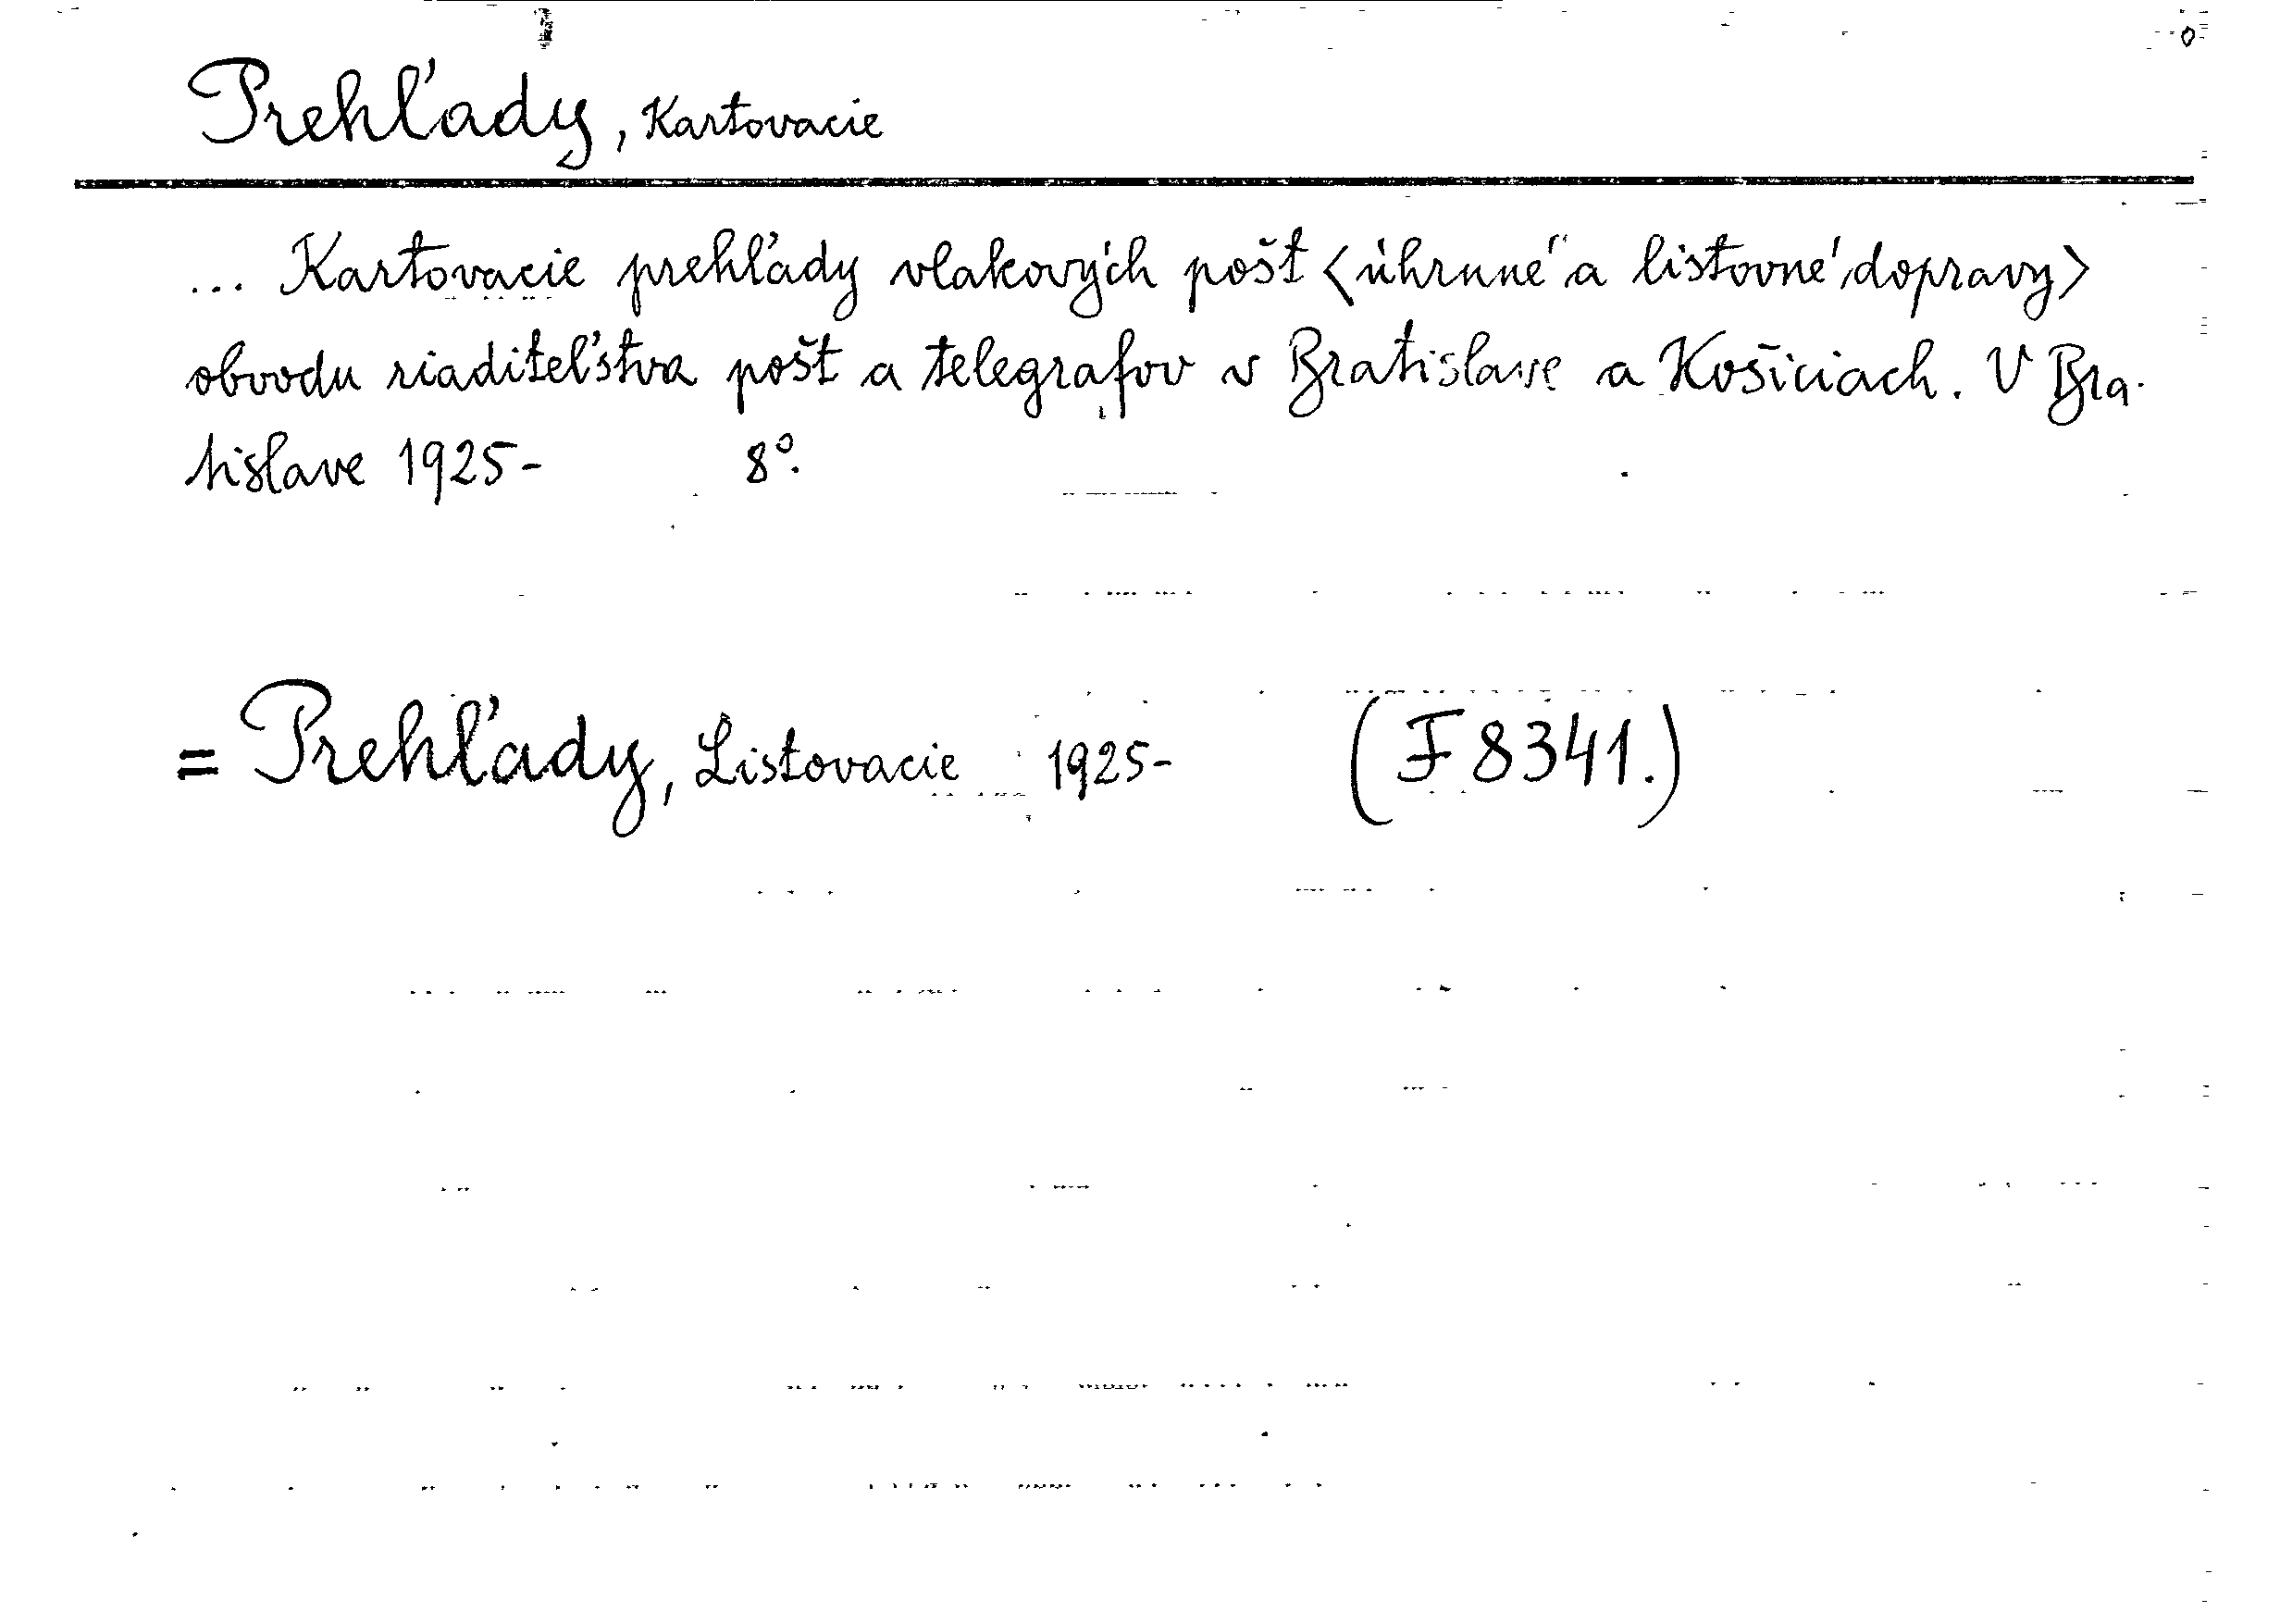 Prehľady, Kartovacie
... Kartovacie prehľady vlakových pošt <úhrnné a listovné dopravy>
obvodu riaditeľstva pošt a telegrafov v Bratislave a Košiciach. V Bra-
tislave 1925-    8°.
= Prehľady, Listovacie 1925-    (F 8341.)